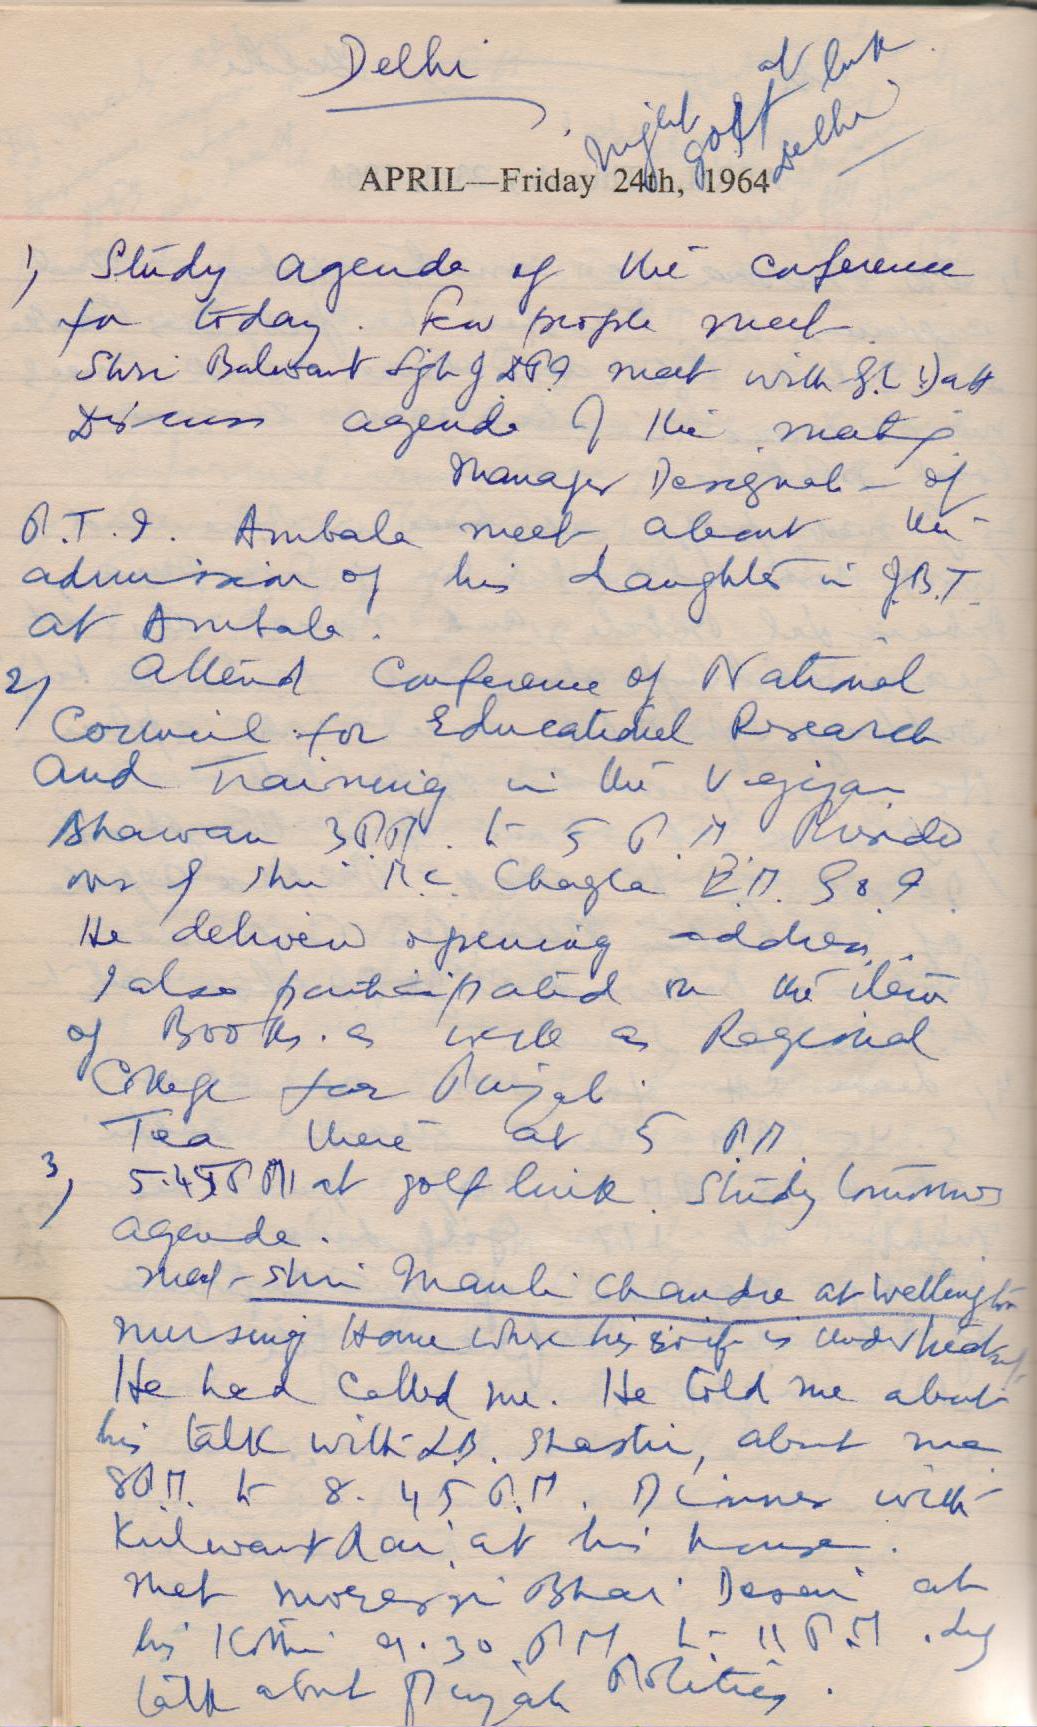 Delhi
Night at golf link Delhi
APRIL—Friday 24th, 1964
1) Study agenda of the conference
for today. Few people meet
Shri Balwant Sgh meet with Datt
Discuss agenda of the meeting
Manager Designate of
P.T.I. Ambala meet about the
admission of his daughter in J.B.T.
at Ambala.
2) Attend Conference of National
Council for Educational Research
and Training in the Vegijan
Bhawan 3 P.M. to 5 P.M Preside
over by Shri M.C. Chagla E.M. G.O.I
He deliver opening address.
I also participated on the item
of Books. as well as Regional
College for Punjab.
Tea there at 5 P.M.
3) 5.45 P.M at golf link. Study tomorrows
agenda.
met Shri Mauli Chandra at Wellington
nursing Home where his wife is under
He had called me. He told me about
his talk with L.B. Shastri, about me
8 P.M. to 8.45 P.M. Dinner with
Kulwant Rai at his house.
Met morarji Bhai Desai at
his Kothi 9.30 P.M to 11 P.M.
talk about Punjab Politics.